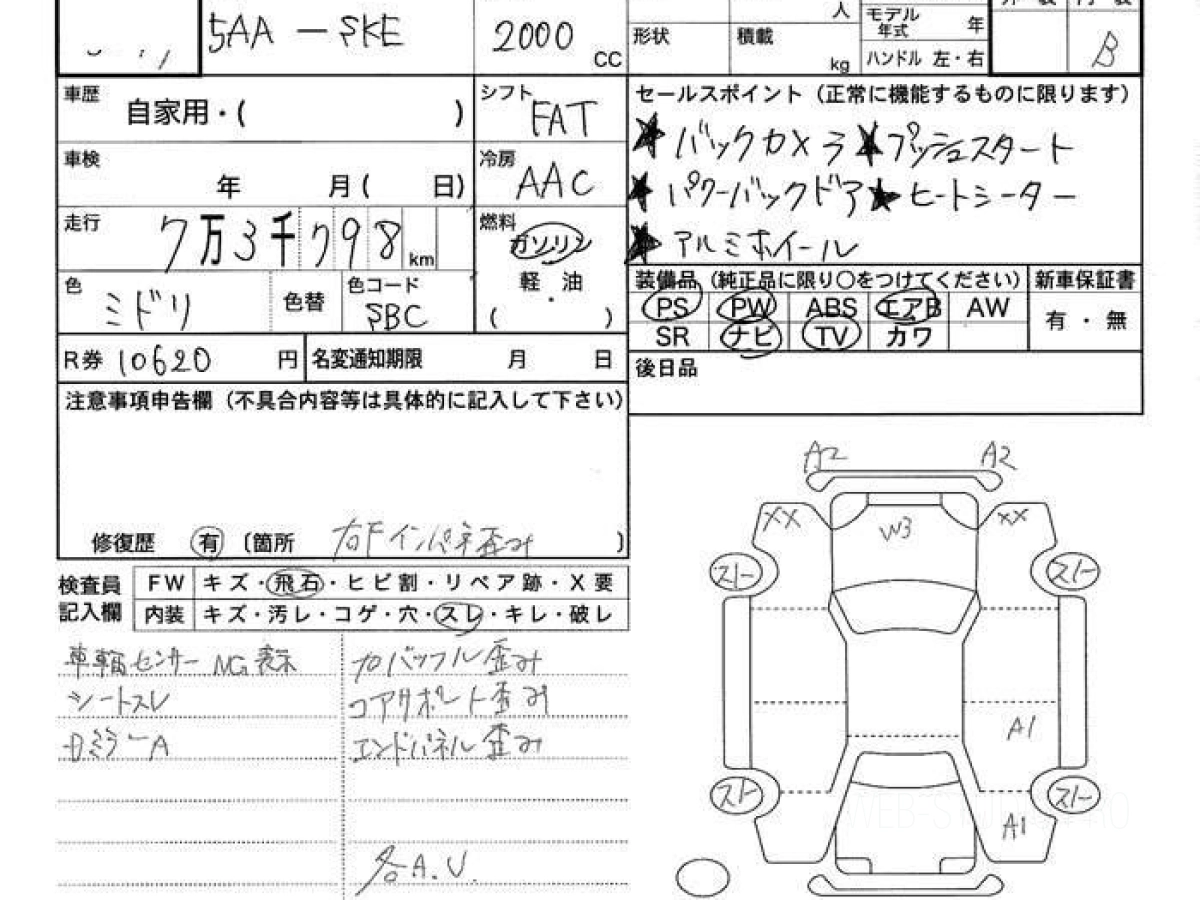 5AA - SKE
2000 CC
人
形状 積載 kg
モデル年式 年
ハンドル 左・右
B
車歴 自家用・( )
シフト FAT
車検 年 月( 日)
冷房 AAC
走行 7万3千798 km
燃料 ガソリン
軽油
・
( )
色 ミドリ 色替 色コード SBC
R券 10620 円 名変通知期限 月 日
セールスポイント(正常に機能するものに限ります)
★バックカメラ★プッシュスタート
★パワーバックドア★ヒートシーター
★アルミホイール
装備品(純正品に限り○をつけてください) 新車保証書
PS PW ABS エアB AW 有・無
SR ナビ TV カワ
後日品
注意事項申告欄(不具合内容等は具体的に記入して下さい)
修復歴 有 〔箇所 右Fインパネ歪み 〕
検査員記入欄
FW キズ・飛石・ヒビ割・リペア跡・X要
内装 キズ・汚レ・コゲ・穴・スレ・キレ・破レ
車輪センサー NG表示
シートスレ
ミラーA
バッフル歪み
コアサポート歪み
エンドパネル歪み
各A.U.
A2 A2
XX W3 XX
スト スト
A1
スト スト
A1